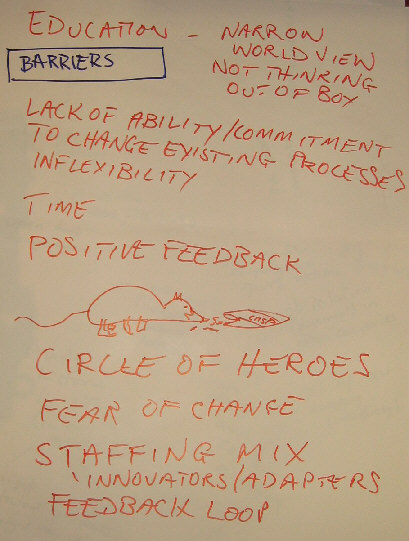 EDUCATION - NARROW
WORLD VIEW
BARRIERS
NOT THINKING
OUT OF BOX
LACK OF ABILITY/COMMITMENT
TO CHANGE EXISTING PROCESSES
INFLEXIBILITY
TIME
POSITIVE FEEDBACK
CIRCLE OF HEROES
FEAR OF CHANGE
STAFFING MIX
INNOVATORS/ADAPTERS
FEEDBACK LOOP